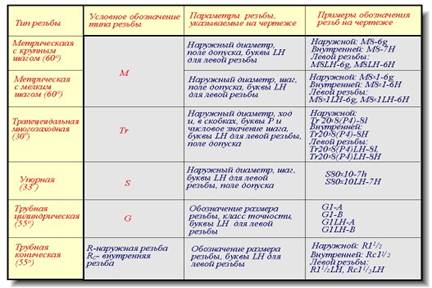 Тип резьбы
Условное обозначение
типа резьбы
Параметры резьбы,
указываемые на чертеже
Примеры обозначения
резьб на чертеже
Метрическая
с крупным
шагом (60°)
М
Наружный диаметр,
поле допуска, буквы LH
для левой резьбы
Наружной: М8-6g
Внутренней: М8-7Н
Левой резьбы:
М8LH-6g, М8LH-6Н
Метрическая
с мелким
шагом (60°)
Наружный диаметр, шаг,
поле допуска, буквы LH
для левой резьбы
Наружной: М8х1-6g
Внутренней: М8х1-6Н
Левой резьбы:
М8х1LH-6g, М8х1LH-6Н
Трапецеидальная
многозаходная
(30°)
Tr
Наружный диаметр, ход
и, в скобках, буквы Р и
числовое значение шага,
буквы LH для левой
резьбы, поле допуска
Наружной:
Tr20х8(P4)-8l
Внутренней:
Tr20х8(P4)-8H
Левой резьбы:
Tr20х8(P4)LH-8l,
Tr20х8(P4)LH-8H
Упорная
(33°)
S
Наружный диаметр, шаг,
буквы LH для левой
резьбы, поле допуска
S80х10-7h
S80х10LH-7H
Трубная
цилиндрическая
(55°)
G
Обозначение размера
резьбы, класс точности,
буквы LH для левой
резьбы
G1-A
G1-B
G1LH-A
G1LH-B
Трубная
коническая
(55°)
R-наружная резьба
Rc- внутренняя
резьба
Обозначение размера
резьбы, буквы LH для
левой резьбы
Наружной: R1½
Внутренней: Rc1½
Левой резьбы:
R1½LH, Rc1½LH